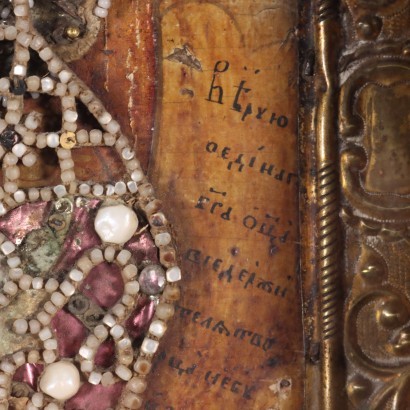 Вѣрую
оедінаг
Бг҃а оц҃а
седержи
телѧтво
рца небу